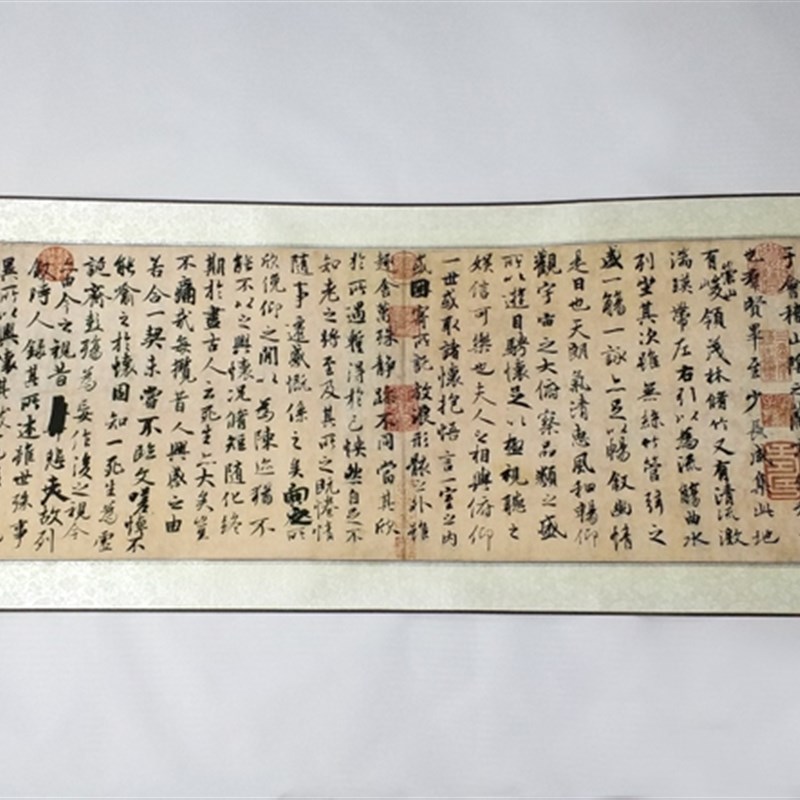 于會稽山陰之蘭
也群賢畢至少長咸集此地
有崇山峻領茂林脩竹又有清流激
湍暎帶左右引以為流觴曲水
列坐其次雖無絲竹管弦之
盛一觴一詠亦足以暢敘幽情
是日也天朗氣清惠風和暢仰
觀宇宙之大俯察品類之盛
所以遊目騁懷足以極視聽之
娛信可樂也夫人之相與俯仰
一世或取諸懷抱悟言一室之內
或因寄所託放浪形骸之外雖
趣舍萬殊靜躁不同當其欣
於所遇暫得於己怏然自足不
知老之將至及其所之既惓情
隨事遷感慨係之矣向之所
欣俛仰之閒以為陳迹猶不
能不以之興懷況脩短隨化終
期於盡古人云死生亦大矣豈
不痛哉每攬昔人興感之由
若合一契未嘗不臨文嗟悼不
能喻之於懷固知一死生為虛
誕齊彭殤為妄作後之視今
亦由今之視昔悲夫故列
敘時人錄其所述雖世殊事
異所以興懷其致一也